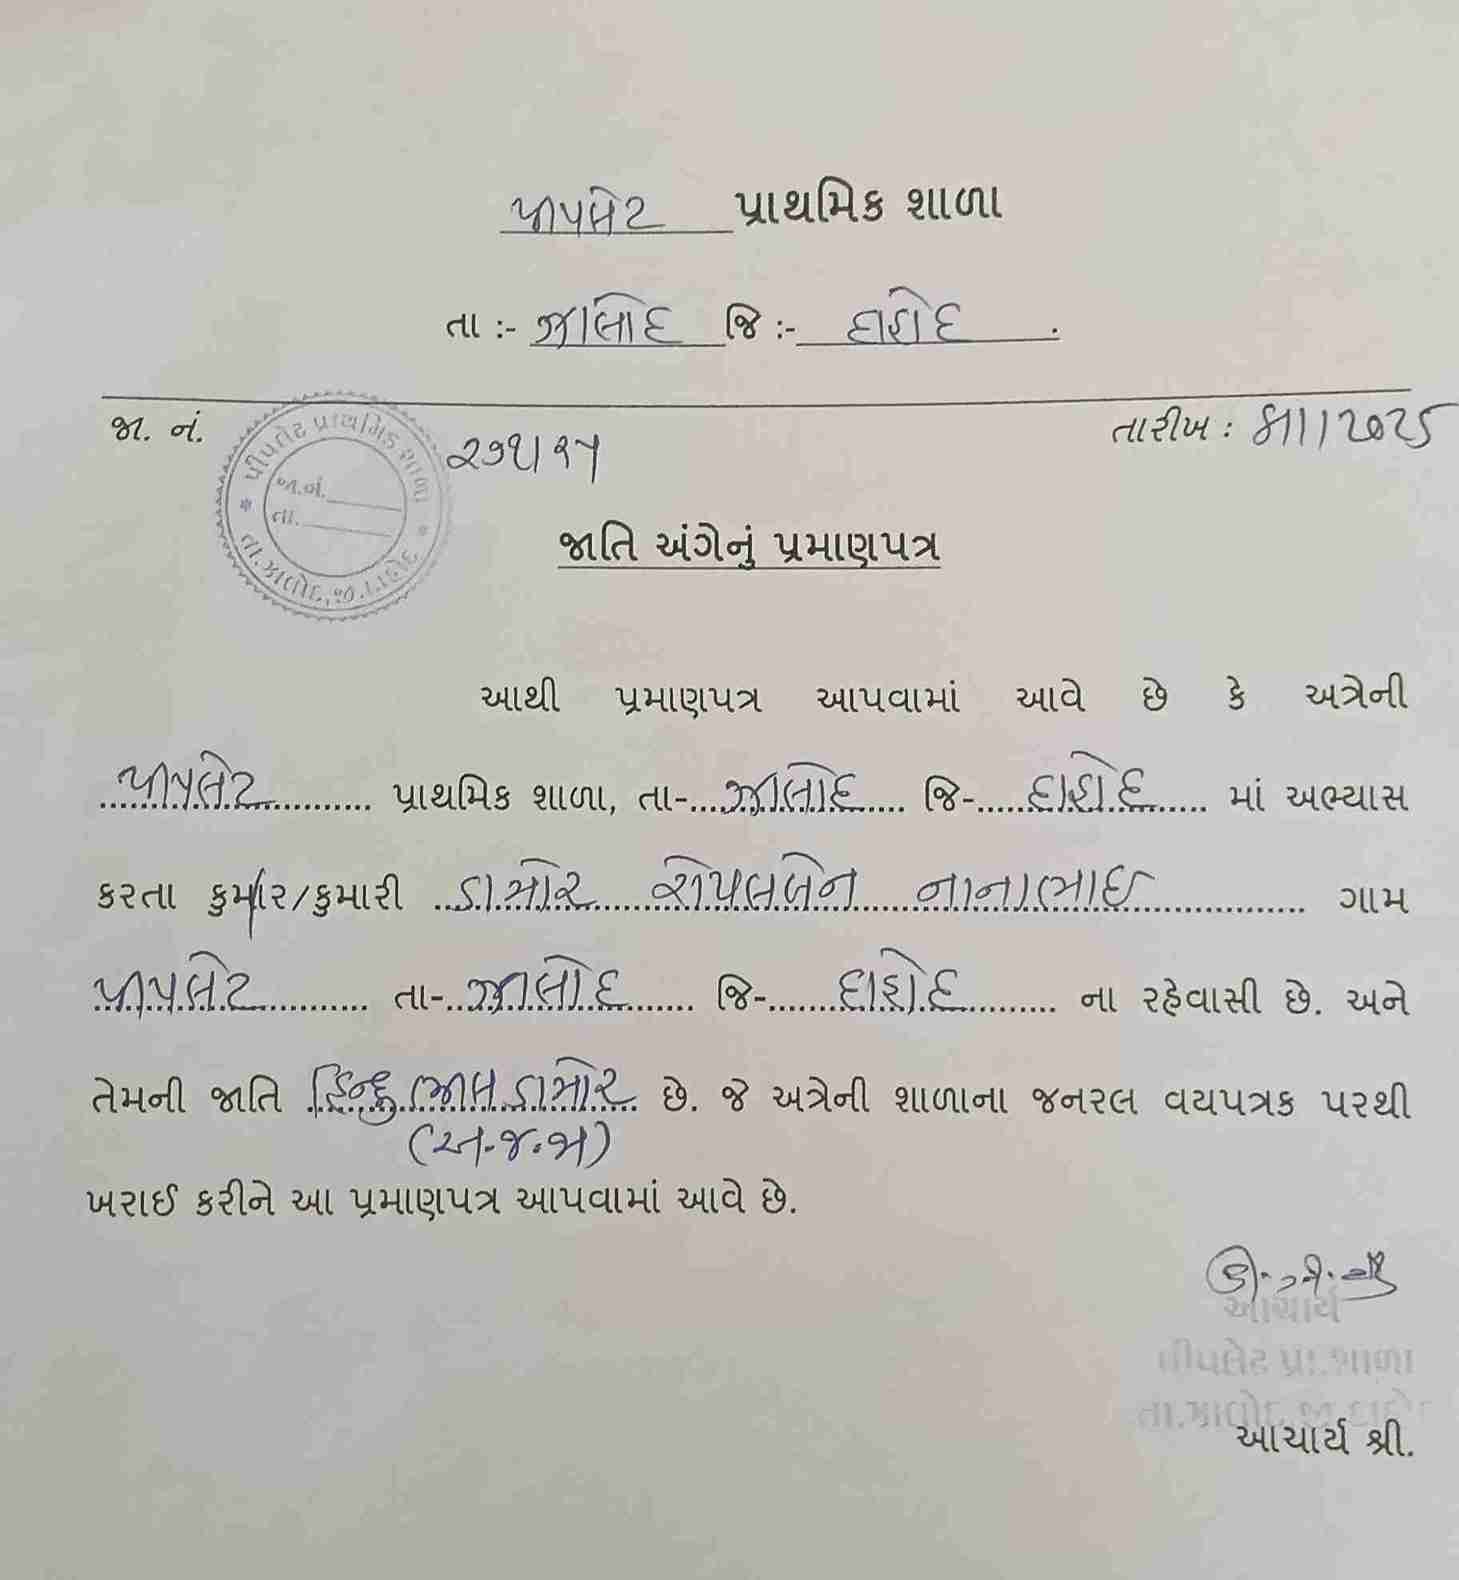 પીપલેટ પ્રાથમિક શાળા
તા :- ઝાલોદ જિ :- દાહોદ .
જા. નં. ૨૭૧/૨૫ તારીખ :
પીપલેટ પ્રાથમિક શાળા
જા.નં.
તા.
તા.ઝાલોદ, જી.દાહોદ
જાતિ અંગેનું પ્રમાણપત્ર
આથી પ્રમાણપત્ર આપવામાં આવે છે કે અત્રેની
પીપલેટ પ્રાથમિક શાળા, તા- ઝાલોદ જિ- દાહોદ માં અભ્યાસ
કરતા કુમાર/કુમારી ડામોર રોપલબેન નાનાભાઇ ગામ
પીપલેટ તા- ઝાલોદ જિ- દાહોદ ના રહેવાસી છે. અને
તેમની જાતિ હિન્દુ ભીલ ડામોર છે. જે અત્રેની શાળાના જનરલ વયપત્રક પરથી
(અ.જ.જા)
ખરાઈ કરીને આ પ્રમાણપત્ર આપવામાં આવે છે.
આચાર્ય
પીપલેટ પ્રા.શાળા
તા.ઝાલોદ, જી.દાહોદ
આચાર્ય શ્રી.